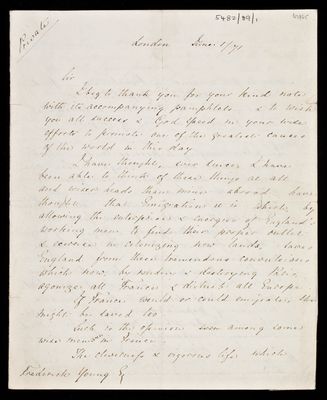 5482/39/1
Private
London June 1/71
Sir
I beg to thank you for your kind note
with its accompanying pamphlets & to wish
you all success & God speed in your wise
efforts to promote one of the greatest causes
of the world in this day
I have thought, ever since I have
been able to think of these things at all
and wiser heads than mine abroad have
thought that Emigration it is which, by
allowing the enterprise & energies of England's
working men to find their proper outlet
& exercise in colonizing new lands, saves
England from those tremendous convulsions
which now, by rendering & destroying Paris,
agonize all France & disturb all Europe
If France would or could emigrate she
might be saved too
Such is the opinion even among some
wise men in France
The cheapness & vigorous life which
Frederick Young Esq